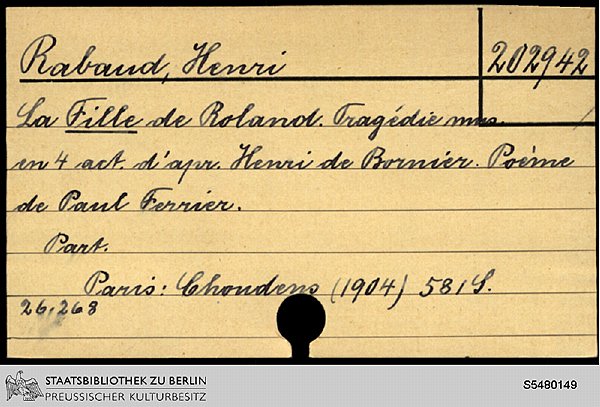 Rabaud, Henri
202942
La Fille de Roland. Tragédie mus.
en 4 act. d'apr. Henri de Bornier. Poème
de Paul Ferrier.
Part.
Paris: Choudens (1904) 581 S.
26,268
STAATSBIBLIOTHEK ZU BERLIN
PREUSSISCHER KULTURBESITZ
S5480149